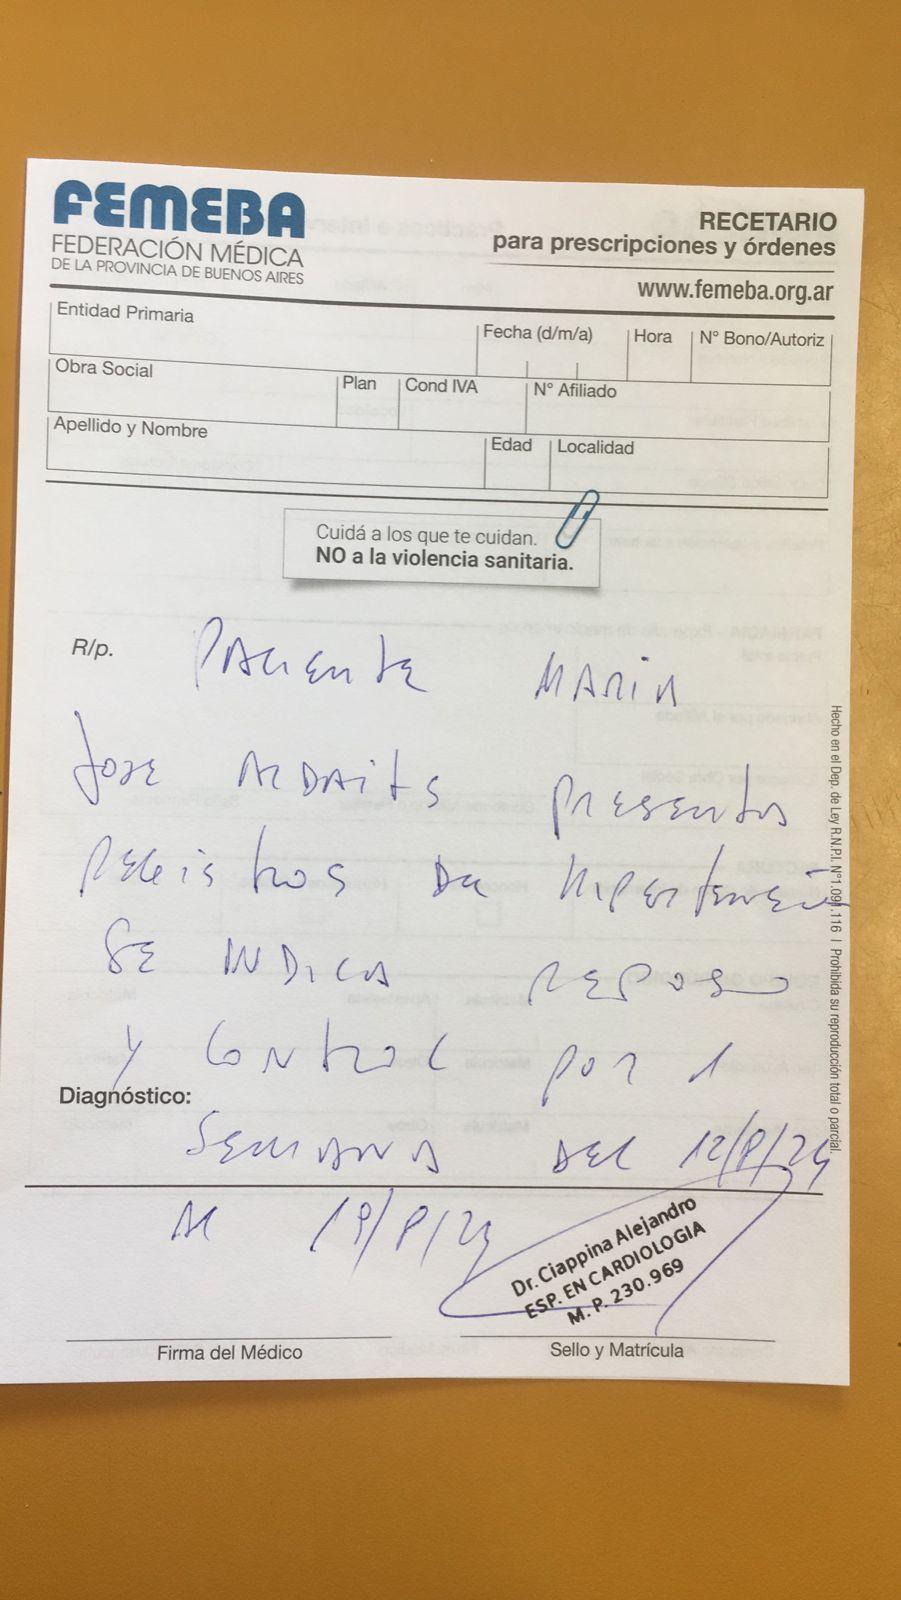 FEMEBA
FEDERACIÓN MÉDICA
DE LA PROVINCIA DE BUENOS AIRES
RECETARIO
para prescripciones y órdenes
www.femeba.org.ar
Entidad Primaria
Fecha (d/m/a)
Hora
N° Bono/Autoriz
Obra Social
Plan
Cond IVA
N° Afiliado
Apellido y Nombre
Edad
Localidad
Cuidá a los que te cuidan.
NO a la violencia sanitaria.
R/p. PACIENTE MARIA
JOSE presentó
registros de hipertensión
SE INDICA REPOSO
y CONTROL por 1
Diagnóstico:
SEMANA DEL 12/8/24
AL 19/8/24
Dr. Ciappina Alejandro
ESP. EN CARDIOLOGIA
M. P. 230.969
Firma del Médico
Sello y Matrícula
Hecho en el Dep. de Ley R.N.P.I. N°1.091.116 | Prohibida su reproducción total o parcial.